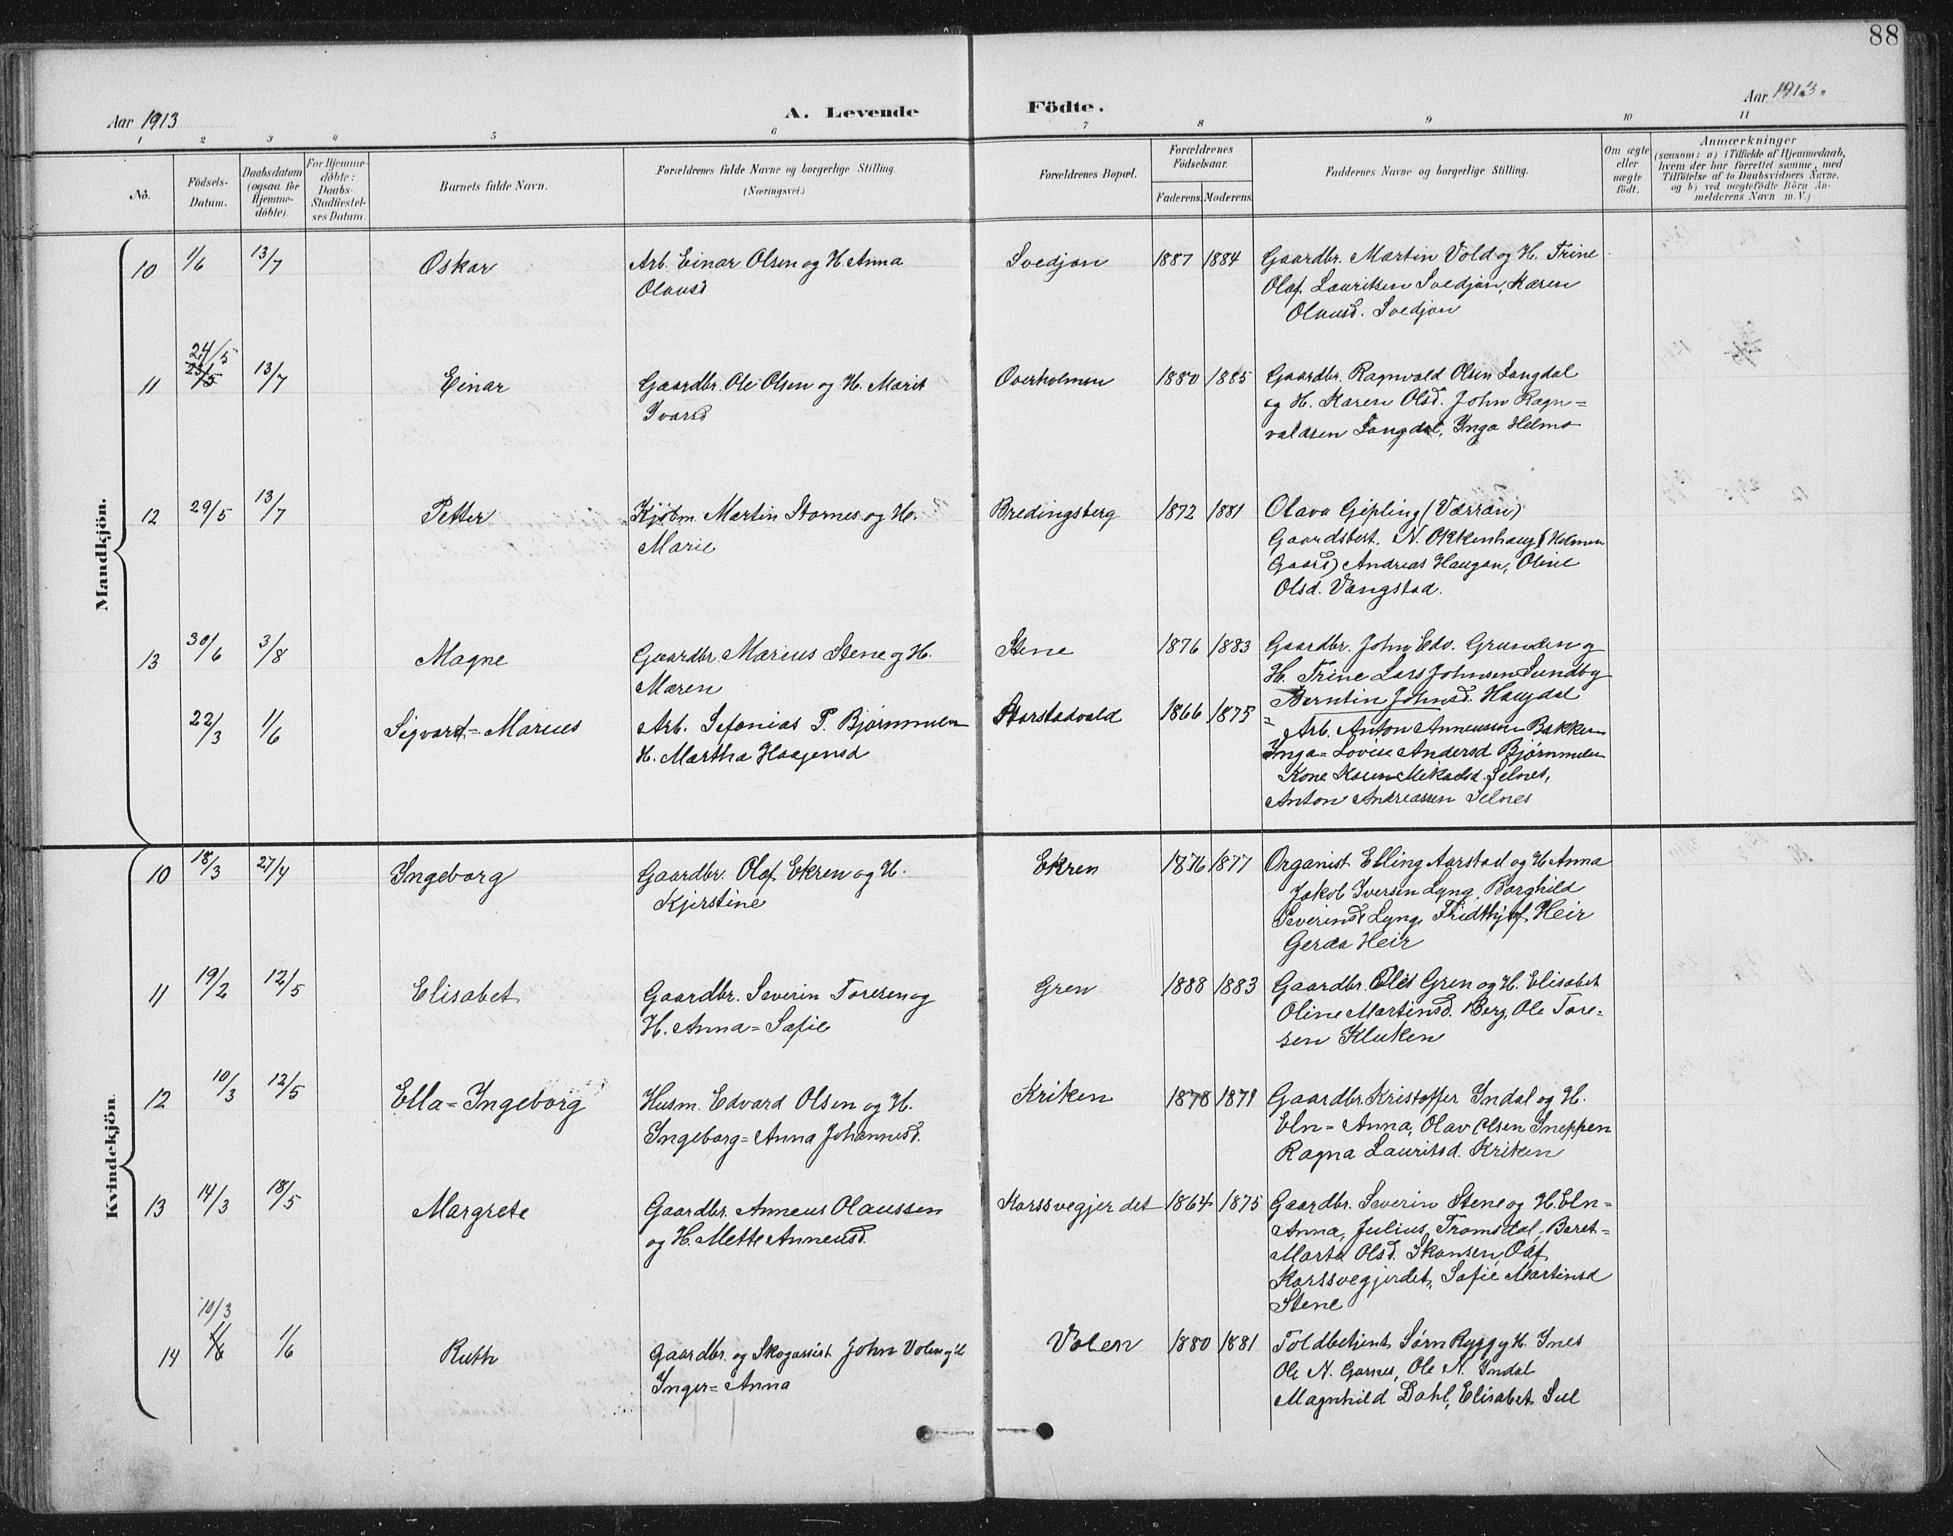 88
Aar 1913
A. Levende
Födte.
Aar 1913.
1 2 3 4 5 6 7 8 9 10 11
No.
Födsels-
Datum.
Daabsdatum
(ogsaa for
Hjemme-
döbte).
For Hjemme-
döbte:
Daabs-
Stadfæstel-
ses Datum.
Barnets fulde Navn.
Forældrenes fulde Navne og borgerlige Stilling.
(Næringsvei.)
Forældrenes Bopæl.
Forældrenes
Födselsaar.
Faderens. Moderens.
Faddernes Navne og borgerlige Stilling.
Om ægte
eller
uægte
födt.
Anmærkninger
(saasom: a) i Tilfælde af Hjemmedaab,
hvem der har forrettet samme, med
Tilföielse af to Daabsvidners Navne.
og b) ved uægtefödte Börn An-
melderens Navn m. V.)
Mandkjön.
10 1/6 13/7 Oskar Arb. Einar Olsen og H. Anna Svedjan 1887 1884 Gaardbr. Martin Vold og H. Trine
Olausd Olaf Lauritsen Svedjan, Karen
Olausd. Svedjan
24/5
11 23/5 13/7 Einar Gaardbr. Ole Olsen og H. Marit Overholmen 1880 1885 Gaardbr. Ragnvald Olsen Langdal
Ivarsd og H. Karen Olsd. John Ragn=
valdsen Langdal, Inga Helmo
12 29/5 13/7 Petter Kjøbm. Martin Stornes og H. Bredingsberg 1872 1881 Olava Gipling (Værran)
Marie Gaardsbest. N. Okkenhaug (Holmen
Gaard) Andreas Haugan, Oline
Olsd. Vangstad.
13 30/6 3/8 Magne Gaardbr. Marius Stene og H. Stene 1876 1883 Gaardbr. John Edv. Grunden og
Maren H. Trine Lars Johnsen Sundby
Berntin Johnsd. Haugdal
22/3 1/6 Sigvart=Marius Arb. Sefanias P. Bjørnmelen Storstadvald 1866 1875 Arb. Anton Anneussen Bakken
H. Martha Haagensd Inga=Lovise Andersd Bjørnmelen
Kone Karen Mikalsd. Selnes,
Anton Andreassen Selnes
Kvindekjön.
10 18/3 27/4 Ingeborg Gaardbr. Olaf Ekren og H. Ekren 1876 1877 Organist Elling Aarstad og H. Anna
Kjerstine Jakob Iversen Lyng, Borghild
Severinsd Lyng, Fridthjof Heir
Gerda Heir
11 19/2 12/5 Elisabet Gaardbr. Severin Toresen og Gren 1888 1883 Gaardbr. Oles Gren og H. Elisabet
H. Anna=Sofie Oline Martinsd. Berg, Ole Tore-
sen Kluken
12 10/3 12/5 Ella=Ingeborg Husm. Edvard Olsen og H. Kriken 1878 1879 Gaardbr. Kristoffer Indal og H.
Ingeborg=Anna Johannesd. Eln=Anna, Olav Olsen Sneppen
Ragna Lauritsd. Kriken
13 14/3 18/5 Margrete Gaardbr. Anneus Olaussen Korssvegjerdet 1864 1875 Gaardbr. Severin Stene og H. Eln=
og H. Mette Anneusd. Anna, Julius Tromsdal, Beret=
Marta Olsd. Skansen, Olaf
Korssvegjerdet, Sofie Martinsd
Stene
10/3
14 1/6 1/6 Ruth Gaardbr. og Skogassist John Volen og H Volen 1880 1881 Toldbetjent Sørn Rygg og H. Ines
Inger=Anna Ole N. Garnes, Ole N. Indal
Magnhild Dahl, Elisabet Sul